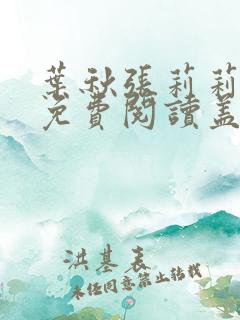 葉秋張莉莉
免費閱讀蓋
洪基表
未经同意禁止转载